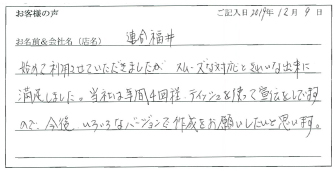 お客様の声 ご記入日 2019年12月9日
お名前&会社名(店名) 連合福井
始めて利用させていただきましたが、スムーズな対応ときれいな出来に
満足しました。当社は年間4回程、ティッシュを使って宣伝をしています
ので、今後、いろいろなバージョンで作成をお願いしたいと思います。